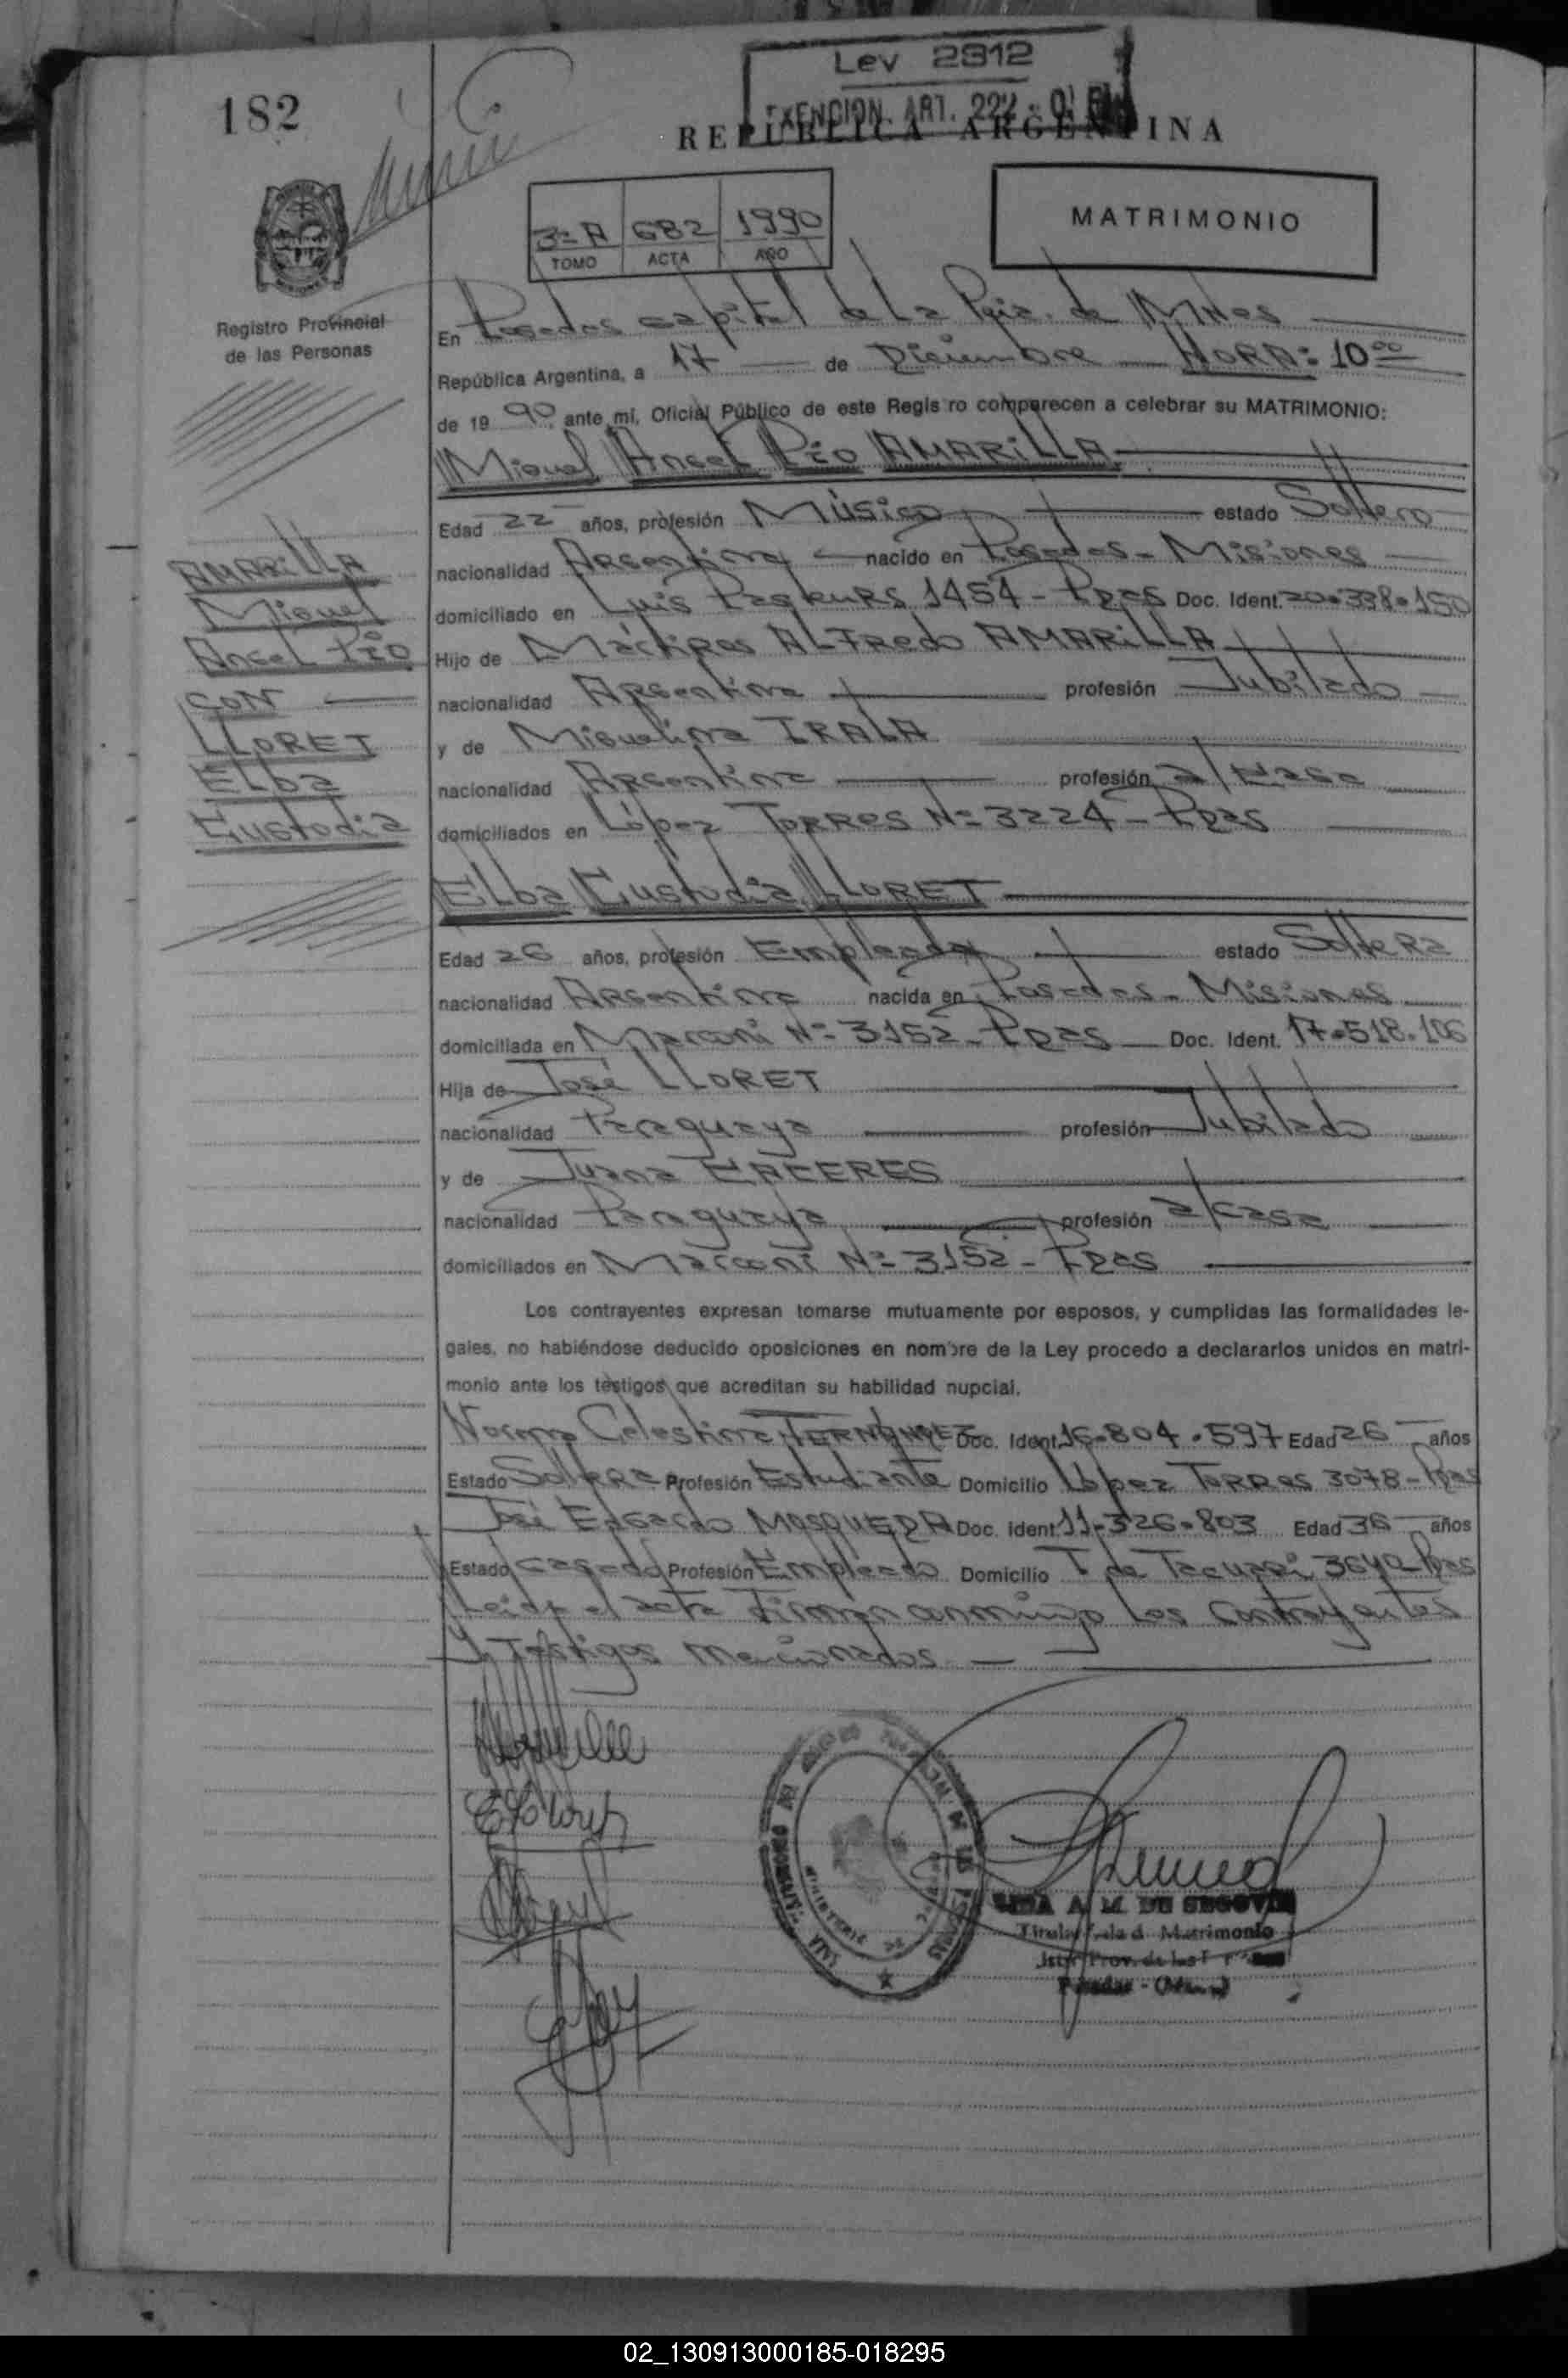 182
Ley 2312
EXENCION. ART. 222 -
REPUBLICA ARGENTINA
3ª A 682 1990
TOMO ACTA AÑO
MATRIMONIO
Registro Provincial
de las Personas
En Posadas capital de La Pcia. de Mnes
República Argentina, a 17 de Diciembre HORA: 10 00
de 19 90 ante mi, Oficial Público de este Regis ro comparecen a celebrar su MATRIMONIO:
Miguel Angel Pio AMARILLA
Edad 22 años, profesión Músico estado Soltero
nacionalidad Argentina nacido en Posadas - Misiones
domiciliado en Luis Pasteurs 1454 - Pdas Doc. Ident. 20.338.150
Hijo de Mártires ALFRedo AMARILLA
nacionalidad Argentina profesión Jubilado
y de Miguelina IRALA
nacionalidad Argentina profesión a/casa
domiciliados en López TORRes Nº 3224 - Pdas
AMARILLA
Miguel
Angel Pio
CON
LLORET
Elba
Custodia
Elba Custodia LLORET
Edad 26 años, profesión Empleada estado Soltera
nacionalidad Argentina nacida en Posadas - Misiones
domiciliada en Marconi Nº 3152 - Pdas Doc. Ident. 17.518.106
Hija de José LLORET
nacionalidad Paraguaya profesión Jubilado
y de Juana CACERES
nacionalidad Paraguaya profesión a/casa
domiciliados en Marconi Nº 3152 - Pdas
Los contrayentes expresan tomarse mutuamente por esposos, y cumplidas las formalidades le-
gales, no habiéndose deducido oposiciones en nombre de la Ley procedo a declararlos unidos en matri-
monio ante los testigos que acreditan su habilidad nupcial.
Norma Celestina FERNÁNDEZ Doc. Ident. 16.804.597 Edad 26 años
Estado Soltera Profesión Estudiante Domicilio López Torres 3078 - Pdas
José Edgardo MOSQUEDA Doc. Ident. 11.326.803 Edad 36 años
Estado Casado Profesión Empleado Domicilio T de Tacuari 3640 - Pdas
Leida el acta Firman conmigo Los Contrayentes
y Testigos mencionados
A. M. DE SEGOVIA
Matrimonio
Prov. de las
Posadas -
02_130913000185-018295